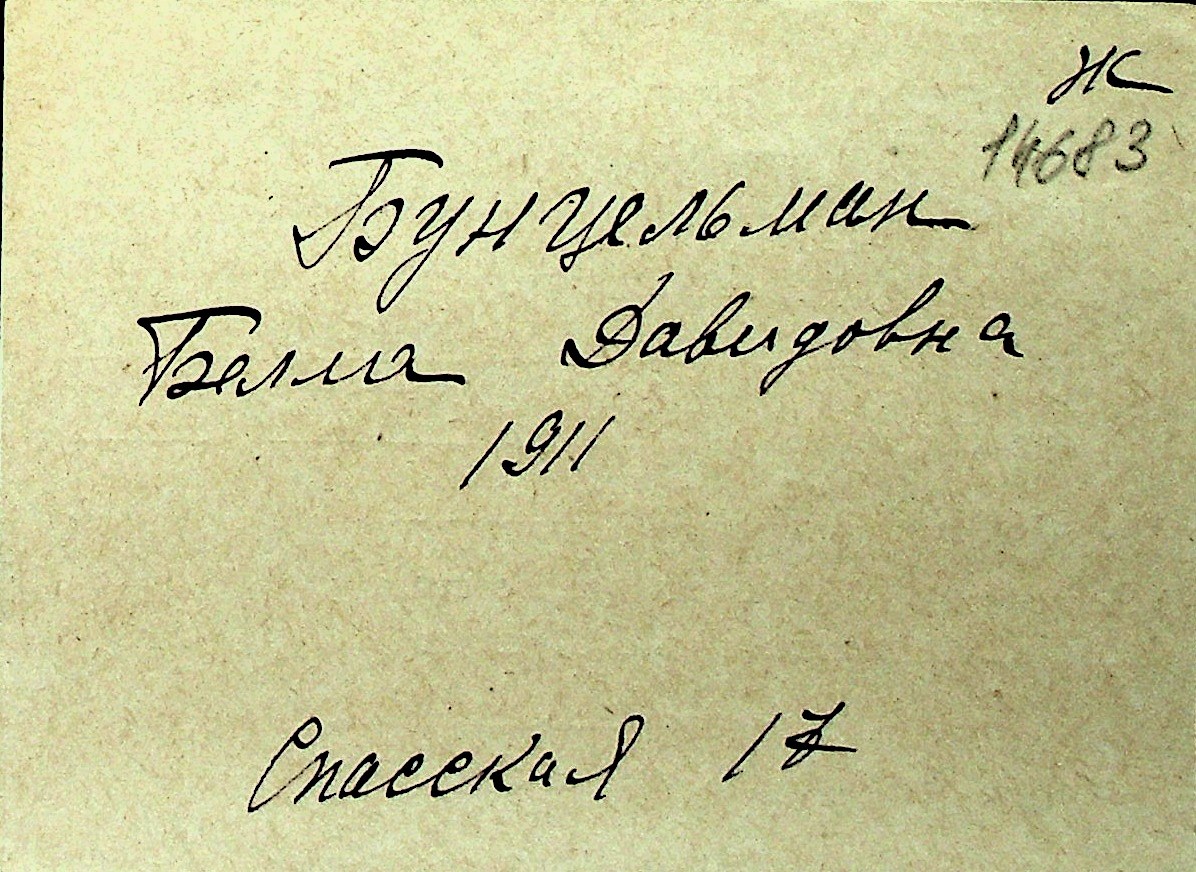 Ж
14683
Бунцельман
Белла Давидовна
1911
Спасская 17